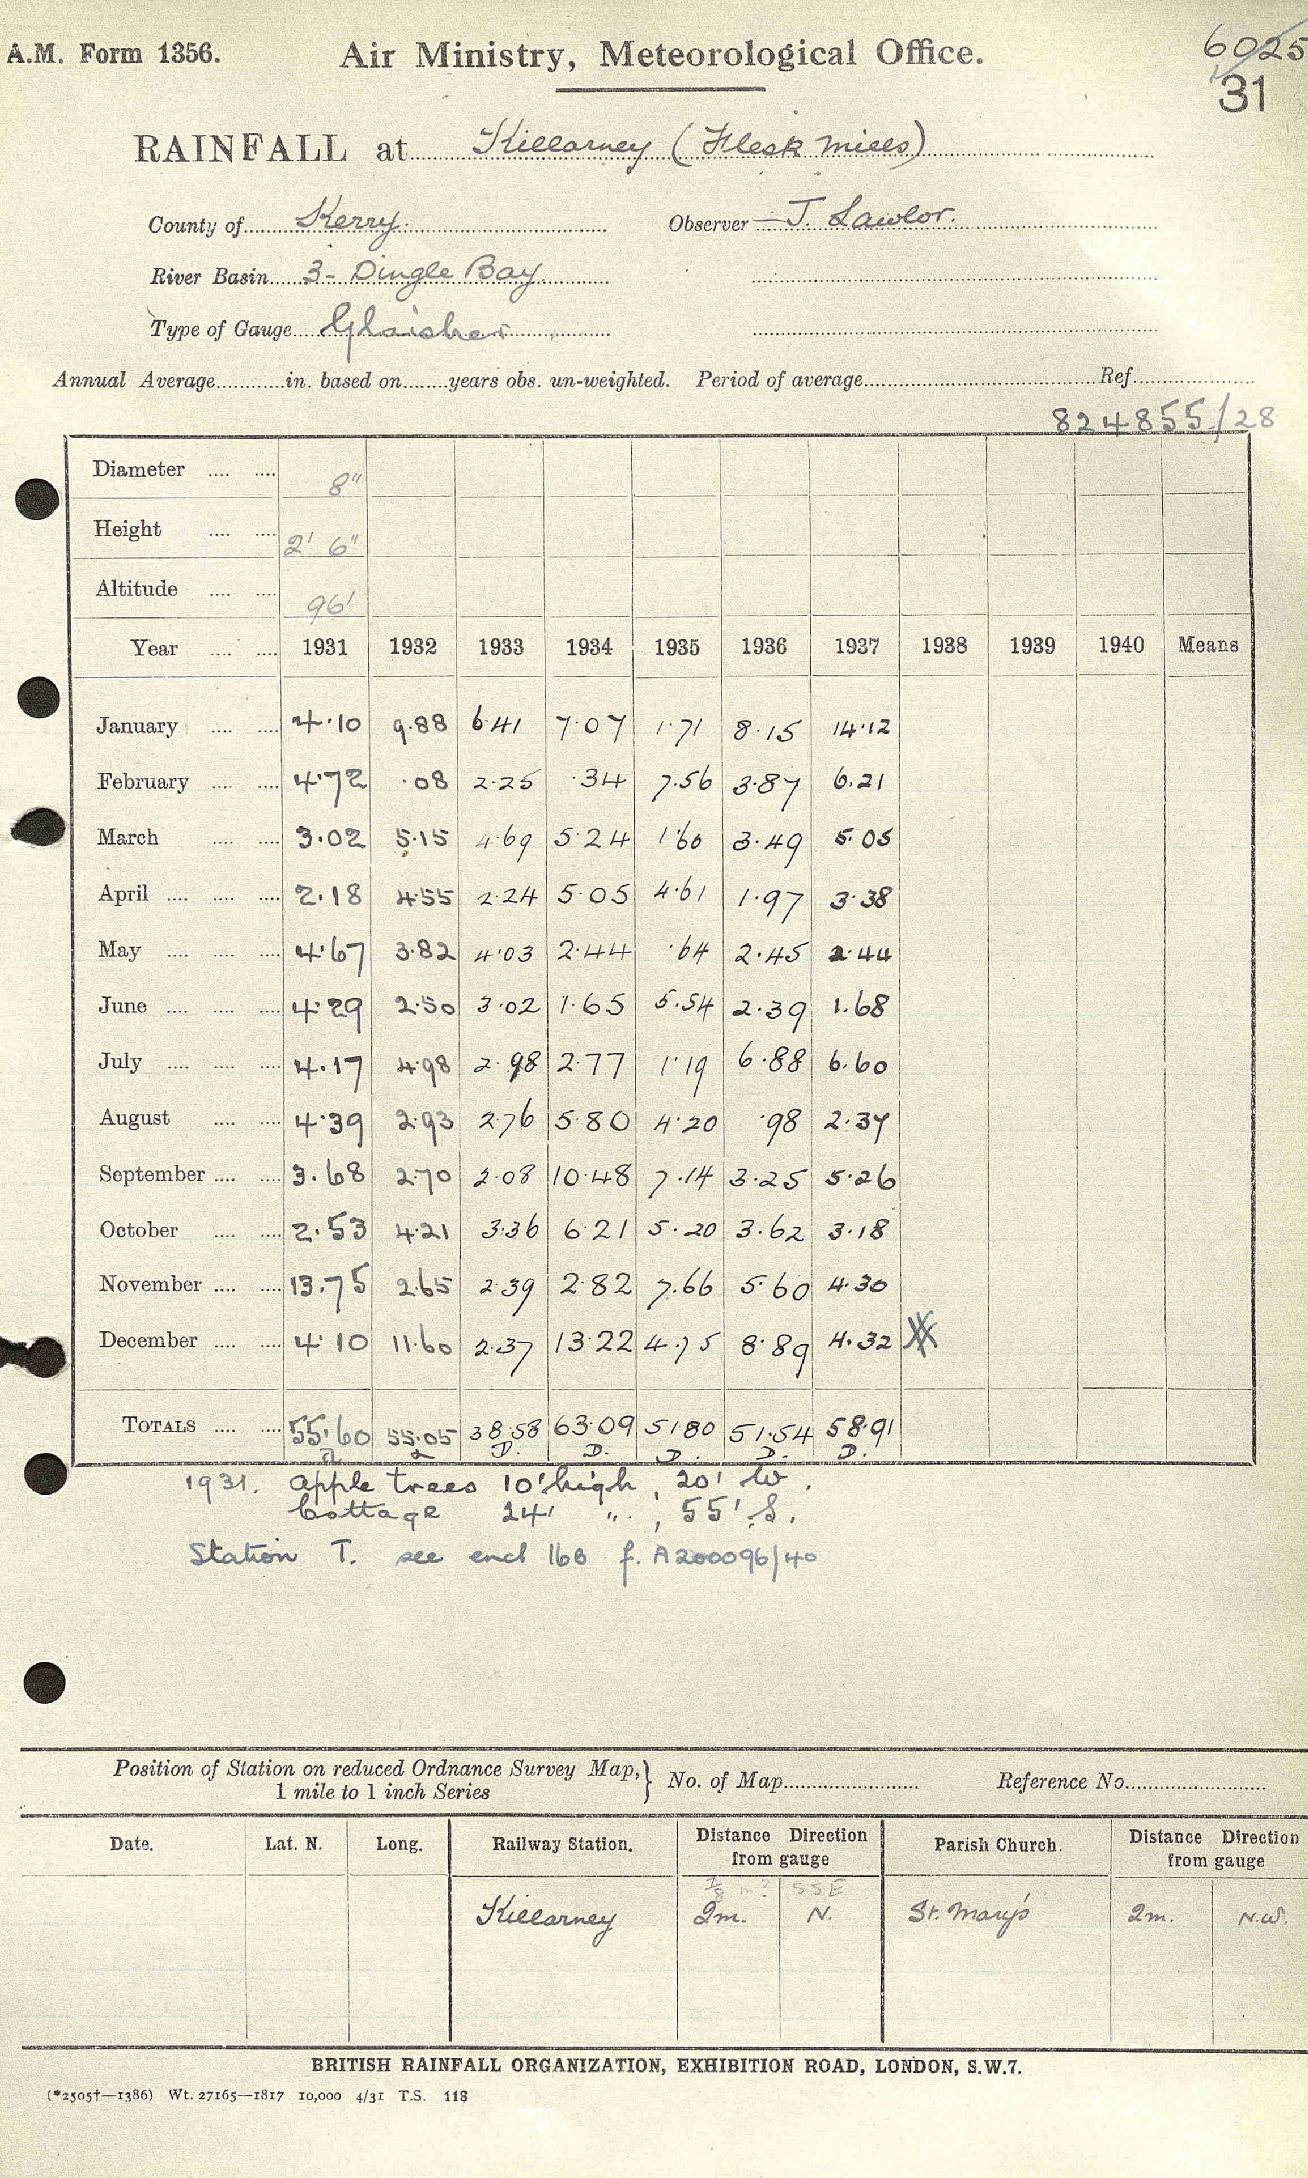 A.M. Form 1356. Air Ministry, Meteorological Office. 6025
31
RAINFALL at Killarney (Flesk Mills)
County of Kerry. Observer J. Lawlor.
River Basin 3 - Dingle Bay
Type of Gauge Glaisher
Annual Average in. based on years obs. un-weighted. Period of average Ref.
824855/28
Diameter 8"
Height 2' 6"
Altitude 96'
Year 1931 1932 1933 1934 1935 1936 1937 1938 1939 1940 Means
January 4.10 9.88 6.41 7.07 1.71 8.15 14.12
February 4.72 .08 2.25 .34 7.56 3.87 6.21
March 3.02 5.15 4.69 5.24 1.60 3.49 5.05
April 2.18 4.55 2.24 5.05 4.61 1.97 3.38
May 4.67 3.82 4.03 2.44 .64 2.45 2.44
June 4.29 2.50 3.02 1.65 5.54 2.39 1.68
July 4.17 4.98 2.98 2.77 1.19 6.88 6.60
August 4.39 2.93 2.76 5.80 4.20 .98 2.37
September 3.68 2.70 2.08 10.48 7.14 3.25 5.26
October 2.53 4.21 3.36 6.21 5.20 3.62 3.18
November 13.75 2.65 2.39 2.82 7.66 5.60 4.30
December 4.10 11.60 2.37 13.22 4.75 8.89 4.32
TOTALS 55.60 55.05 38.58 63.09 51.80 51.54 58.91
D. D. D. D. D.
1931. Apple trees 10' high, 20' W.
Cottage 24' " , 55' S.
Station T. see encl 16B f. A200096/40
Position of Station on reduced Ordnance Survey Map, } No. of Map Reference No.
1 mile to 1 inch Series
Date. Lat. N. Long. Railway Station. Distance Direction from gauge Parish Church. Distance Direction from gauge
SSE
Killarney 2m. N. St. Mary's 2m. N.W.
BRITISH RAINFALL ORGANIZATION, EXHIBITION ROAD, LONDON, S.W.7.
(*2505†—1386) Wt. 27165—1817 10,000 4/31 T.S. 118